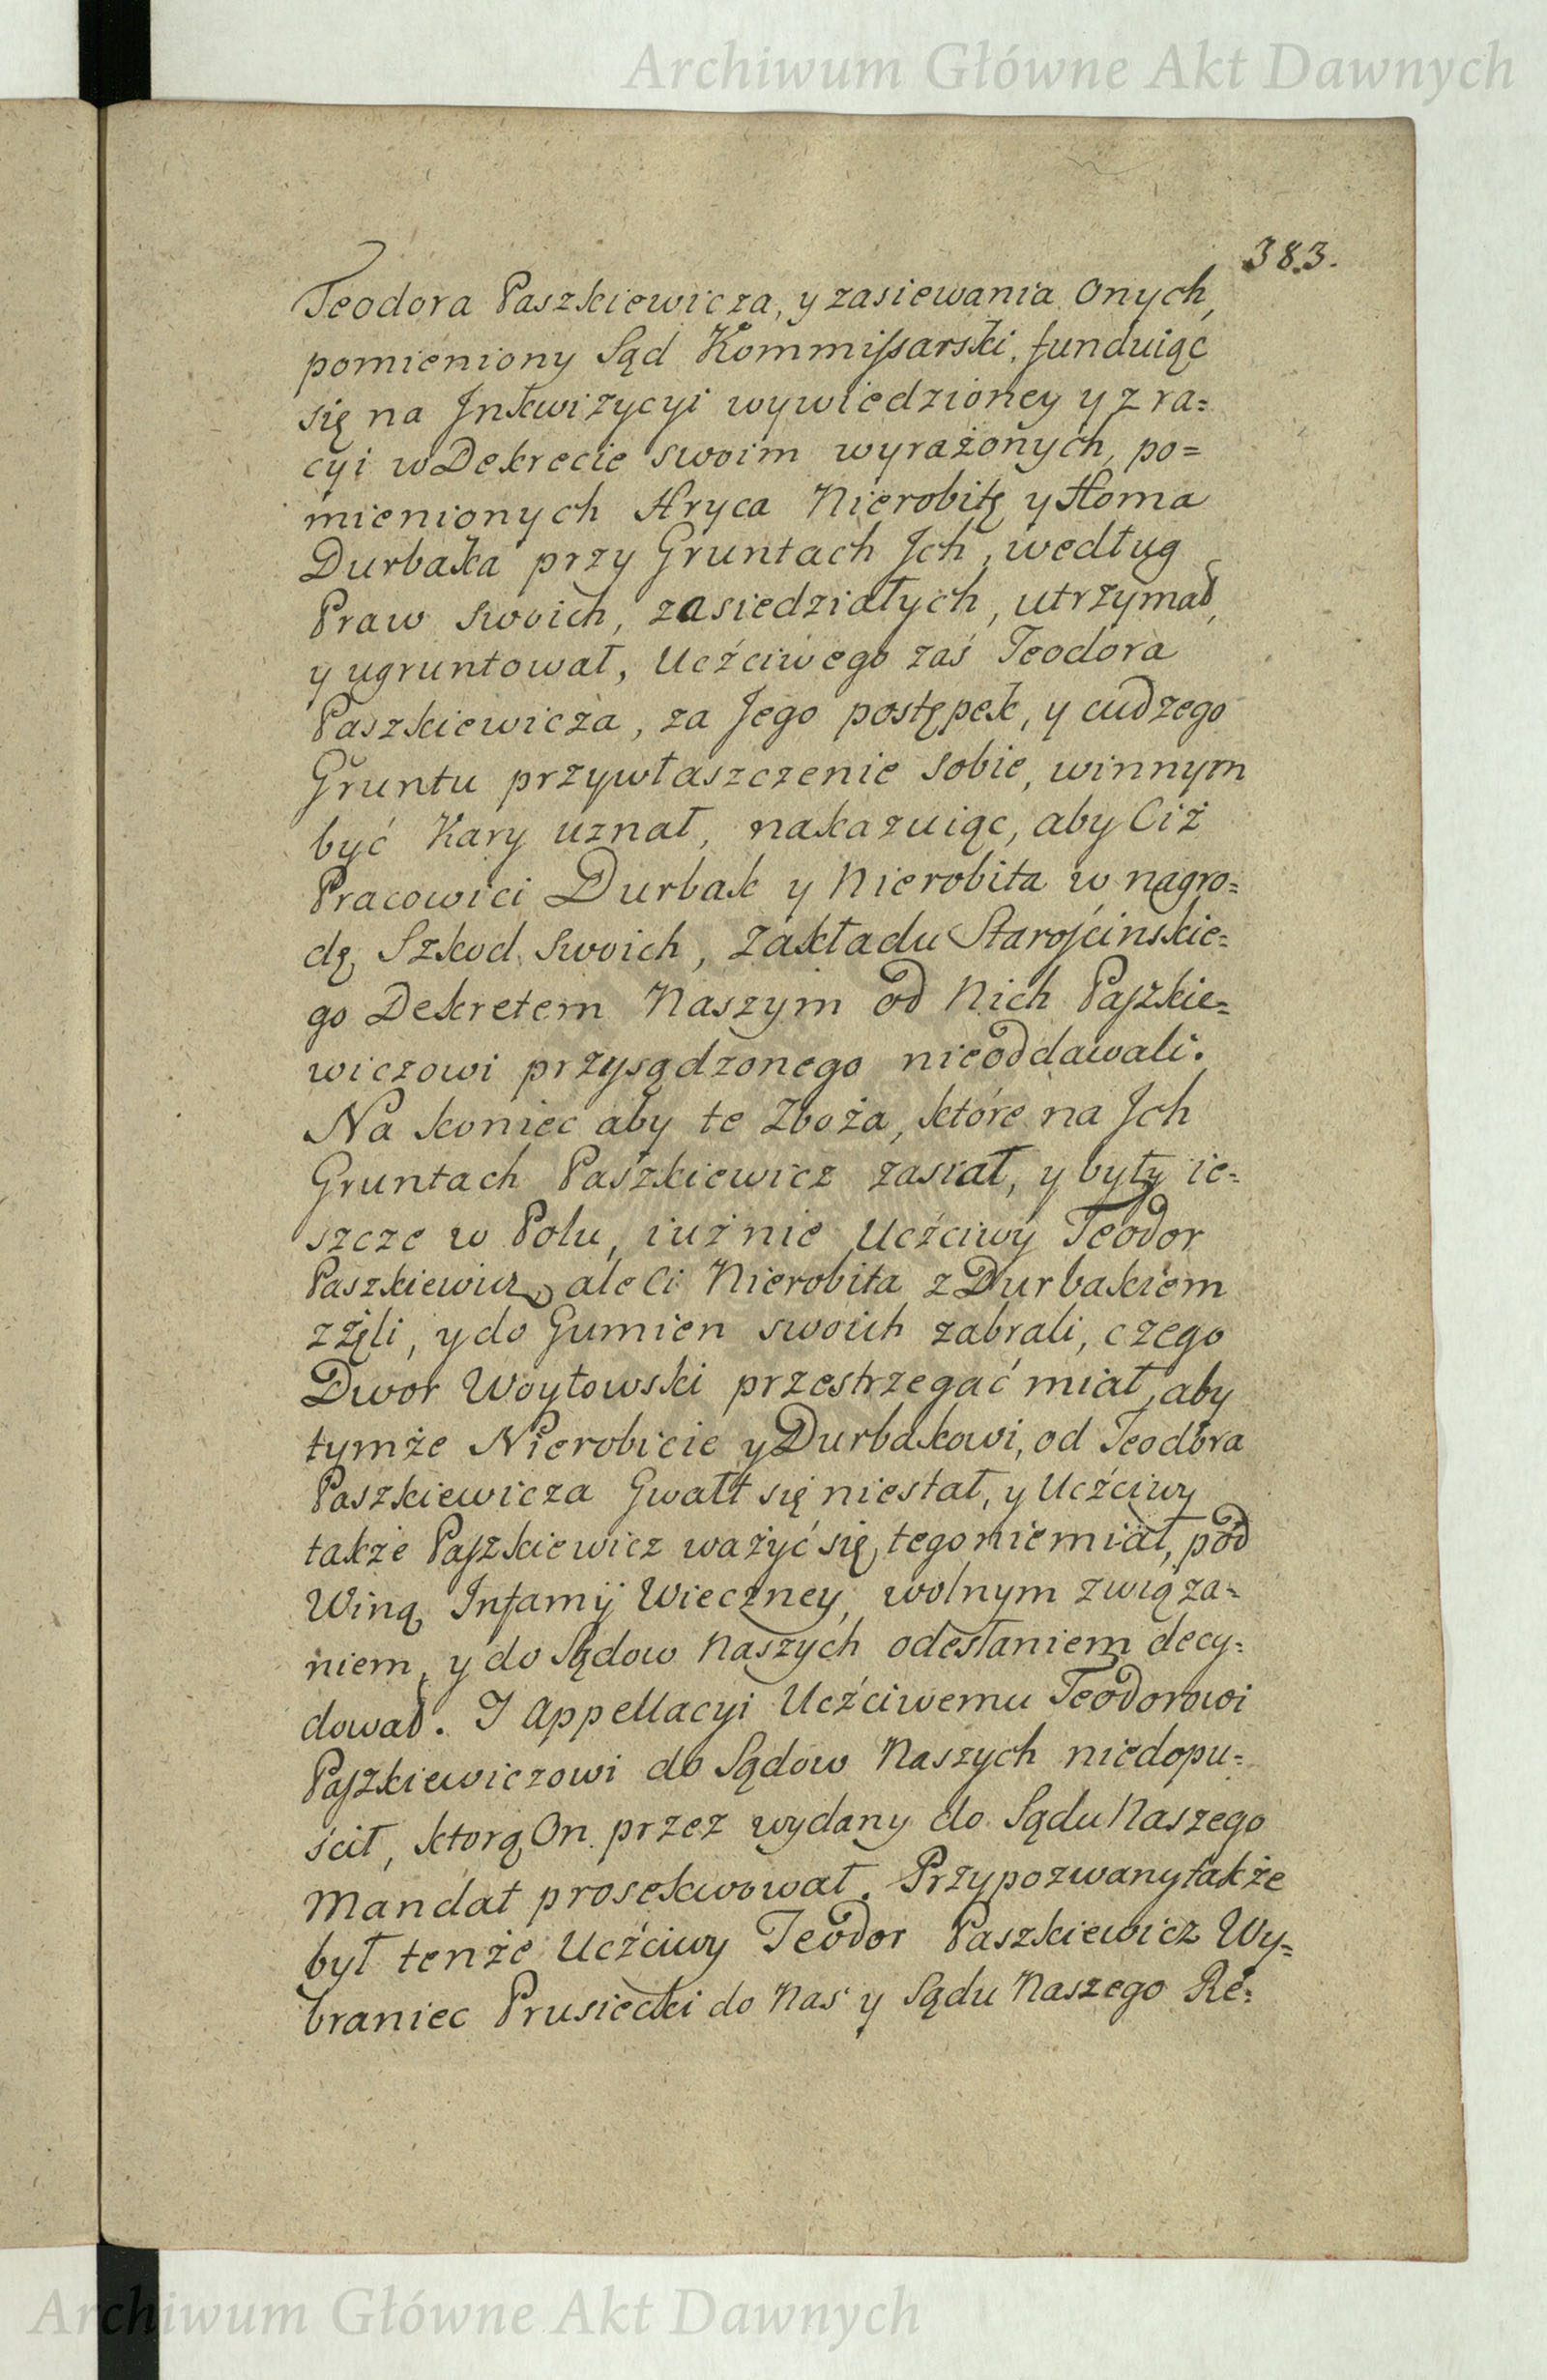 Archiwum Główne Akt Dawnych
383.
Teodora Paszkiewicza, y zasiewania Onych,
pomieniony Sąd Kommissarski, funduiąc
się na Jnkwizycyi wywiedzioney y z ra=
cyi w Dekrecie swoim wyrażonych, po=
mienionych Hryca Nierobitę y Homa
Durbaka przy Gruntach Jch, według
Praw swoich, zasiedziałych, utrzymał,
y ugruntował, Uczciwego zaś Teodora
Paszkiewicza, za Jego postępek, y cudzego
Gruntu przywłaszczenie sobie, winnym
być Kary uznał, nakazuiąc, aby Ciż
Pracowici Durbak y Nierobita w nagro=
dę Szkod swoich, Zakładu Starościnskie=
go Dekretem Naszym od Nich Paszkie=
wiczowi przysądzonego nieoddawali.
Na koniec aby te Zboża, które na Jch
Gruntach Paszkiewicz zasiał, y były ie=
szcze w Polu, iuż nie Uczciwy Teodor
Paszkiewicz, ale Ci Nierobita z Durbakiem
zżęli, y do Gumien swoich zabrali, czego
Dwor Woytowski przestrzegać miał, aby
tymże Nierobicie y Durbakowi, od Teodora
Paszkiewicza Gwałt się niestał, y Uczciwy
także Paszkiewicz ważyć się tego niemiał, pod
Winą Infamij Wieczney, wolnym związa=
niem, y do Sądow Naszych odesłaniem decy=
dował. I Appellacyi Uczciwemu Teodorowi
Paszkiewiczowi do Sądow Naszych niedopu=
ścił, ktorą On przez wydany do Sądu Naszego
Mandat prosekwował. Przypozwany także
był tenże Uczciwy Teodor Paszkiewicz Wy=
braniec Prusiecki do Nas y Sądu Naszego Re=
Archiwum Główne Akt Dawnych